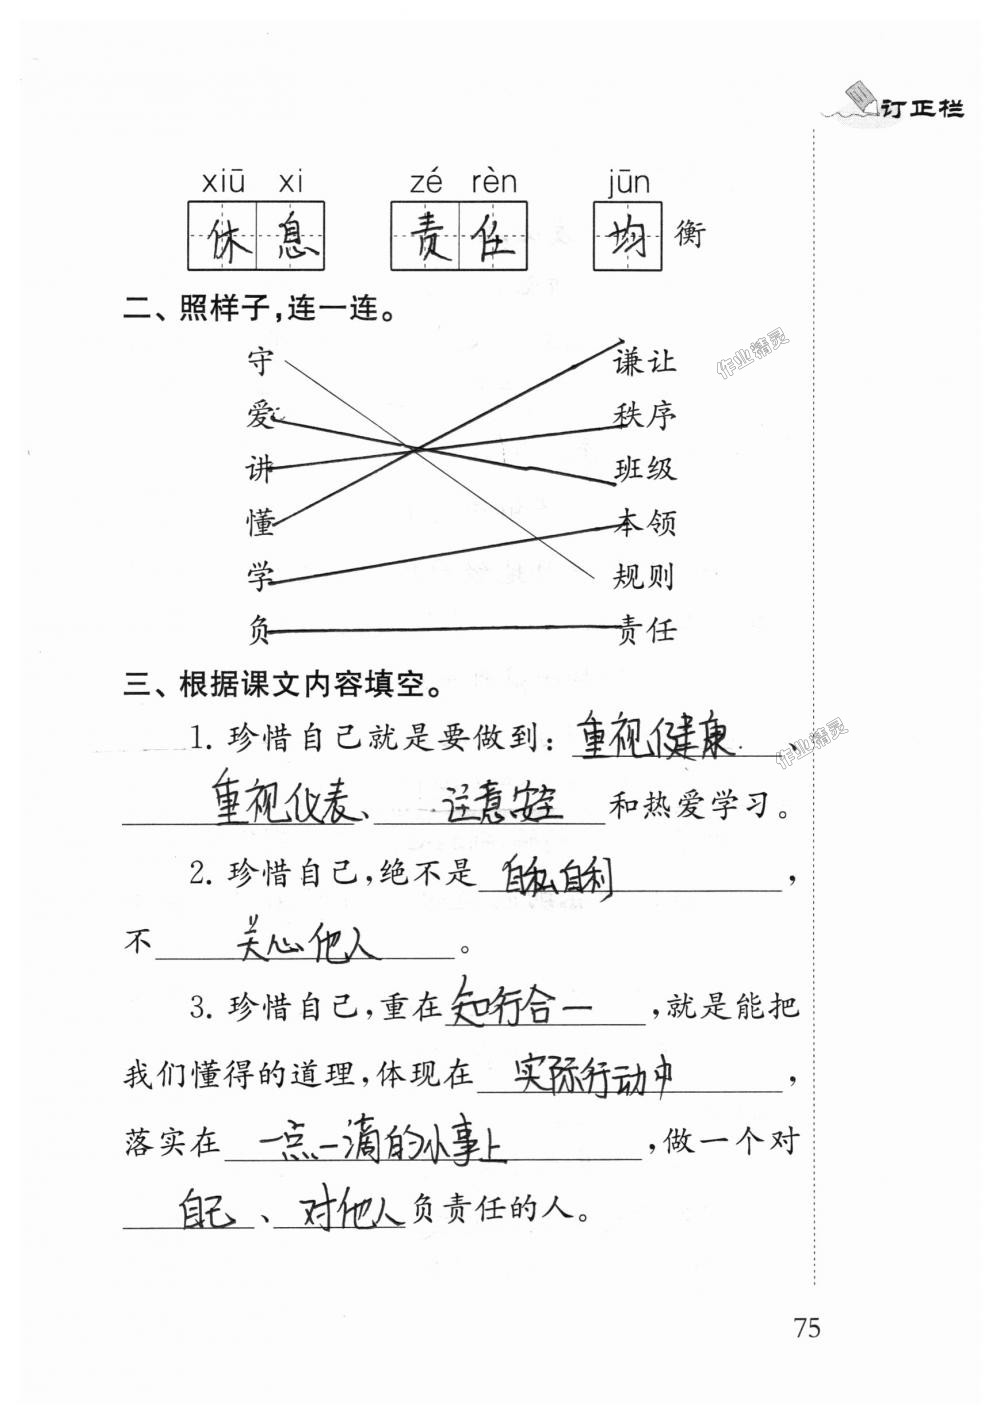 订正栏
xiū xi zé rèn jūn
休息 责任 均衡
二、照样子，连一连。
守 谦让
爱 秩序
讲 班级
懂 本领
学 规则
负 责任
三、根据课文内容填空。
1. 珍惜自己就是要做到：重视健康、
重视仪表、注意安全和热爱学习。
2. 珍惜自己，绝不是自私自利，
不关心他人。
3. 珍惜自己，重在知行合一，就是能把
我们懂得的道理，体现在实际行动中，
落实在一点一滴的小事上，做一个对
自己、对他人负责任的人。
75
作业精灵
作业精灵